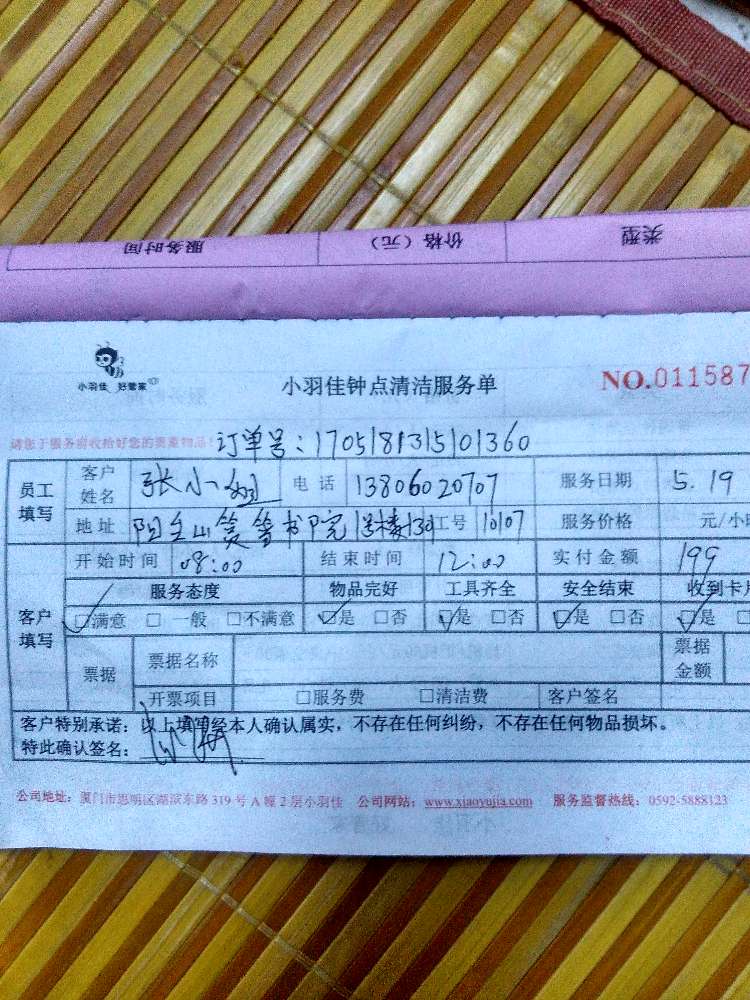 类型 价格（元） 服务时间
小羽佳 好管家
小羽佳钟点清洁服务单 NO.011587
请您于服务前收拾好您的贵重物品! 订单号：170518131510 1360
员工填写 客户姓名 张小姐 电话 13806020707 服务日期 5.19
地址 书院 1号楼1301 工号 10107 服务价格 元/小时
开始时间 08:00 结束时间 12:00 实付金额 199
客户填写 服务态度 物品完好 工具齐全 安全结束 收到卡
☑满意 □ 一般 □不满意 ☑是 □否 ☑是 □否 ☑是 □否 ☑是 □
票据 票据名称 票据金额
开票项目 □服务费 □清洁费 客户签名
客户特别承诺：以上填写经本人确认属实，不存在任何纠纷，不存在任何物品损坏。
特此确认签名：
公司地址：厦门市思明区湖滨东路 319 号 A 幢 2 层小羽佳 公司网站：www.xiaoyujia.com 服务监督热线：0592-5888123